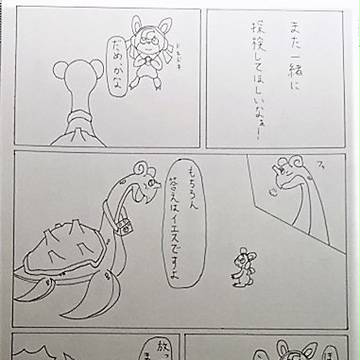 また一緒に
探検してほしいなぁー
ドキドキ
だめ、かな
フッ
もちろん
答えはイエスですよ
放っ
ま
ほ